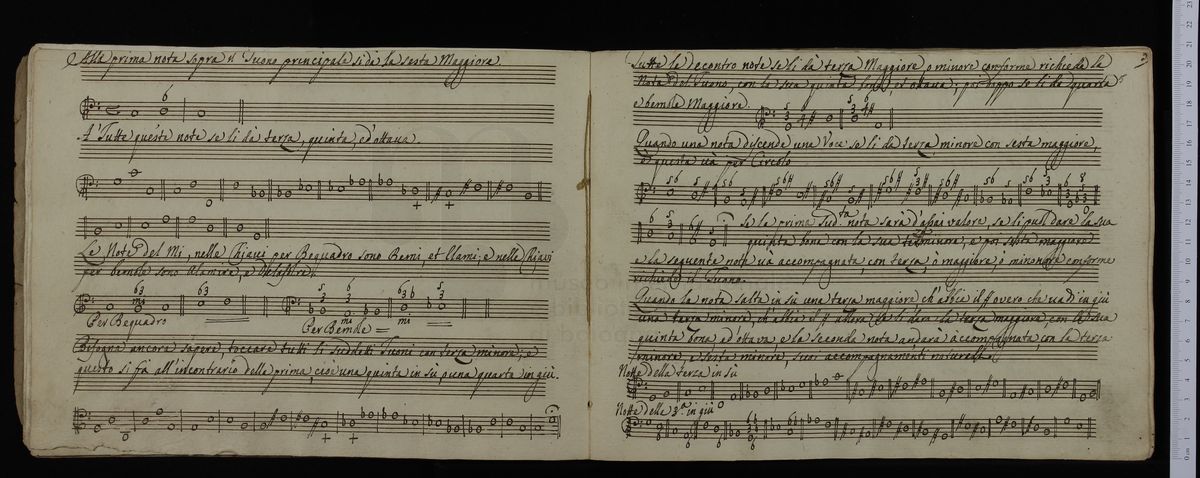 Alla prima nota sopra il Tuono principale si dà la sesta Maggiore
6
A' Tutte queste note se li dà terza, quinta, ed'ottava.
Le Note del Mi, nelle Chiavi per Bequadro sono Bemi, et Elami; e nelle Chiavi
per bemlle sono Alamire, e
mi
Per Bequadro
Per Bemlle
mi
mi
Bisogna ancora sapere, toccare tutti li sudetti Tuoni con terza minore; e
questo si fà all'incontrario della prima, cioè una quinta in sù, e una quarta in giù.
3
Tutte le decontro note se li dà terza Maggiore o minore conforme richiede la
Nota del Tuono, con la sua quinta, ed ottava; poi doppo se li dà quarta
e bemlle Maggiore.
Quando una nota discende una Voce se li dà terza minore con sesta maggiore,
e questa và per Circolo
Se la prima sud.ta nota sarà d'assai valore, se li può dare la sua
quinta bona con la sua minore, e poi sesta maggiore
e la seguente nota và accompagnata, con terza, ò maggiore, ò minore conforme
richiede il Tuono.
Quando la nota salta in sù una terza maggiore ch'abbia il # overo che và in giù
una terza minore, ch'abbia il # allora se li darà la terza maggiore, con la sua
quinta bona ed'ottava e la seconda nota andarà accompagnata, con la terza
minore, e sesta minore, suoi accompagnamenti naturali.
Notte della terza in sù
Notte della 3.a in giù